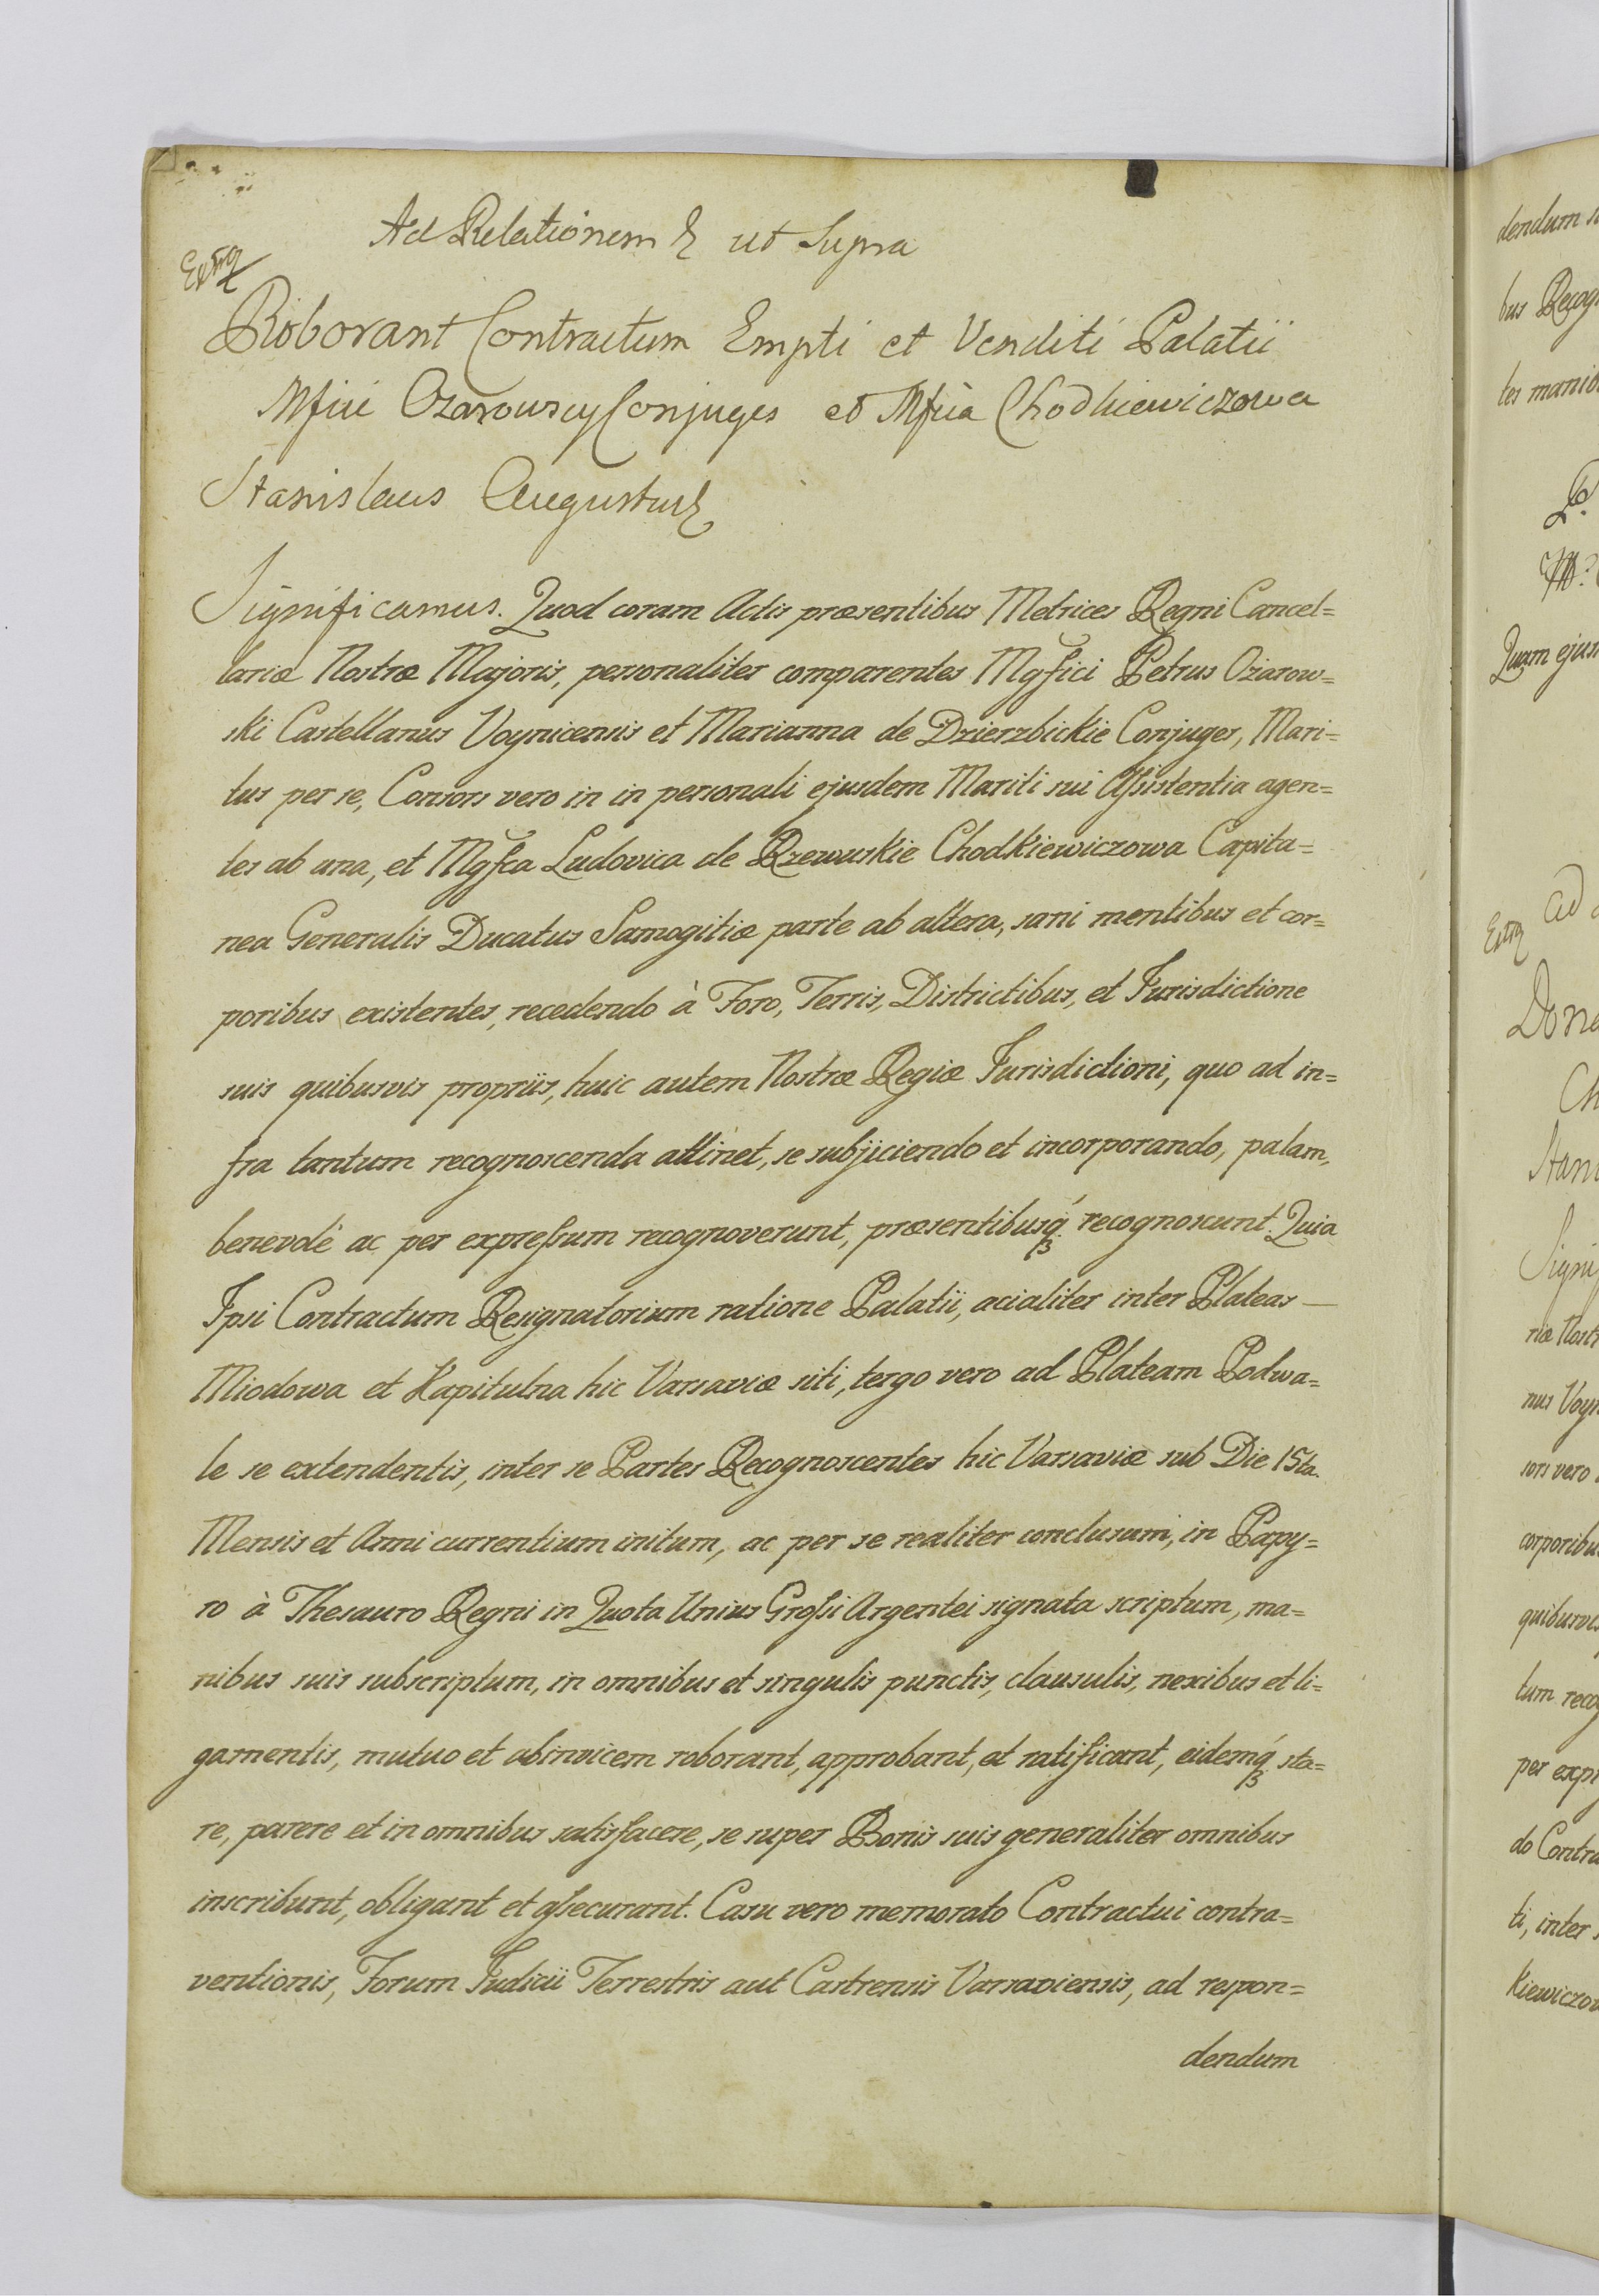 Ad Relationem ut Supra
Extra
Roborant Contractum Empti et Venditi Palatii
Mfici Ozarowscy Conjuges et Mfica Chodkiewiczowa
Stanislaus Augustus
Significamus. Quod coram Actis præsentibus Metrices Regni Cancel=
lariæ Nostræ Majoris, personaliter comparentes Mgfici Petrus Ożarow=
ski Castellanus Voynicensis et Marianna de Dzierzbickie Conjuges, Mari=
tus per se, Consors vero in in personali ejusdem Mariti sui Assistentia agen=
tes ab una, et Mgfca Ludovica de Rzewuskie Chodkiewiczowa Capita=
nea Generalis Ducatus Samogitiæ parte ab altera, sani mentibus et cor=
poribus existentes, recedendo à Foro, Terris, Districtibus, et Jurisdictione
suis quibusvis propriis, huic autem Nostræ Regiæ Jurisdictioni, quo ad in=
fra tantum recognoscenda attinet, se subjiciendo et incorporando, palam,
benevolé ac per expressum recognoverunt, præsentibusq́ recognoscunt. Quia
Ipsi Contractum Resignatorium ratione Palatii, acialiter inter Plateas —
Miodowa et Kapitulna hic Varsaviæ siti, tergo vero ad Plateam Podwa=
le se extendentis, inter se Partes Recognoscentes hic Varsaviæ sub Die 15ta.
Mensis et Anni currentium initum, ac per se realiter conclusum, in Papy=
ro à Thesauro Regni in Quota Unius Grossi Argentei signata scriptum, ma=
nibus suis subscriptum, in omnibus et singulis punctis, clausulis, nexibus et li=
gamentis, mutuo et abinvicem roborant, approbant, et ratificant, eidemq́ sta=
re, parere et in omnibus satisfacere, se super Bonis suis generaliter omnibus
inscribunt, obligant et assecurant. Casu vero memorato Contractui contra=
ventionis, Forum Judicii Terrestris aut Castrensis Varsaviensis, ad respon=
dendum
dendum
bus Recog
tes manib
Quam ejus
Extra
Ad
Dona
Ch
Stani
Signi
riæ Nostr
nus Voyn
sors vero
corporibus
quibusvis
tum recog
per expr
do Contra
ti, inter
Kiewiczow